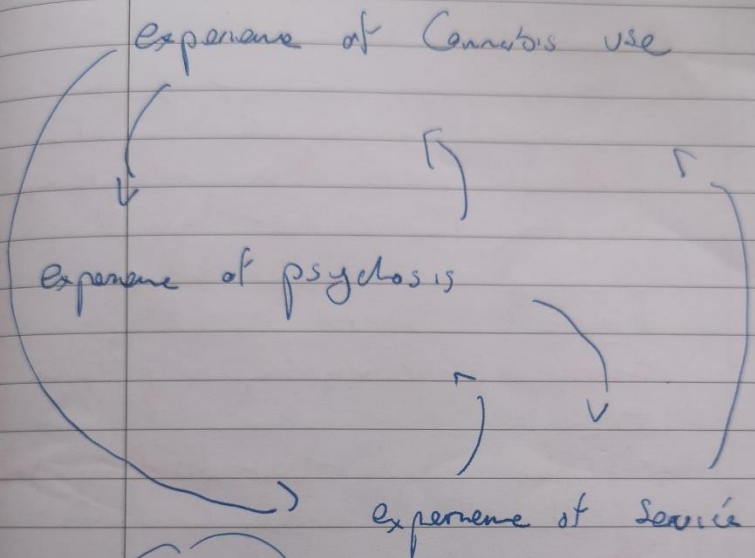 experience of Cannabis use
experience of psychosis
experience of Service